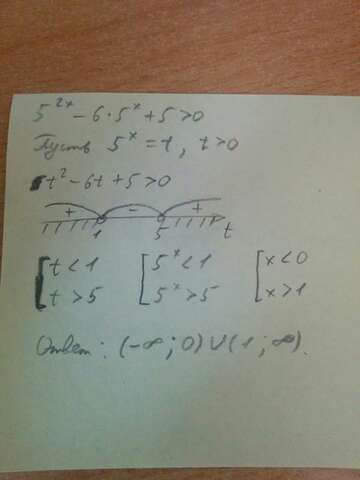 5^{2x} - 6·5^x + 5 > 0
Пусть 5^x = t, t > 0
t² - 6t + 5 > 0
+ - +
1 5 t
[ t < 1 [ 5^x < 1 [ x < 0
t > 5 5^x > 5 x > 1
Ответ: (-∞; 0) ∪ (1; ∞).